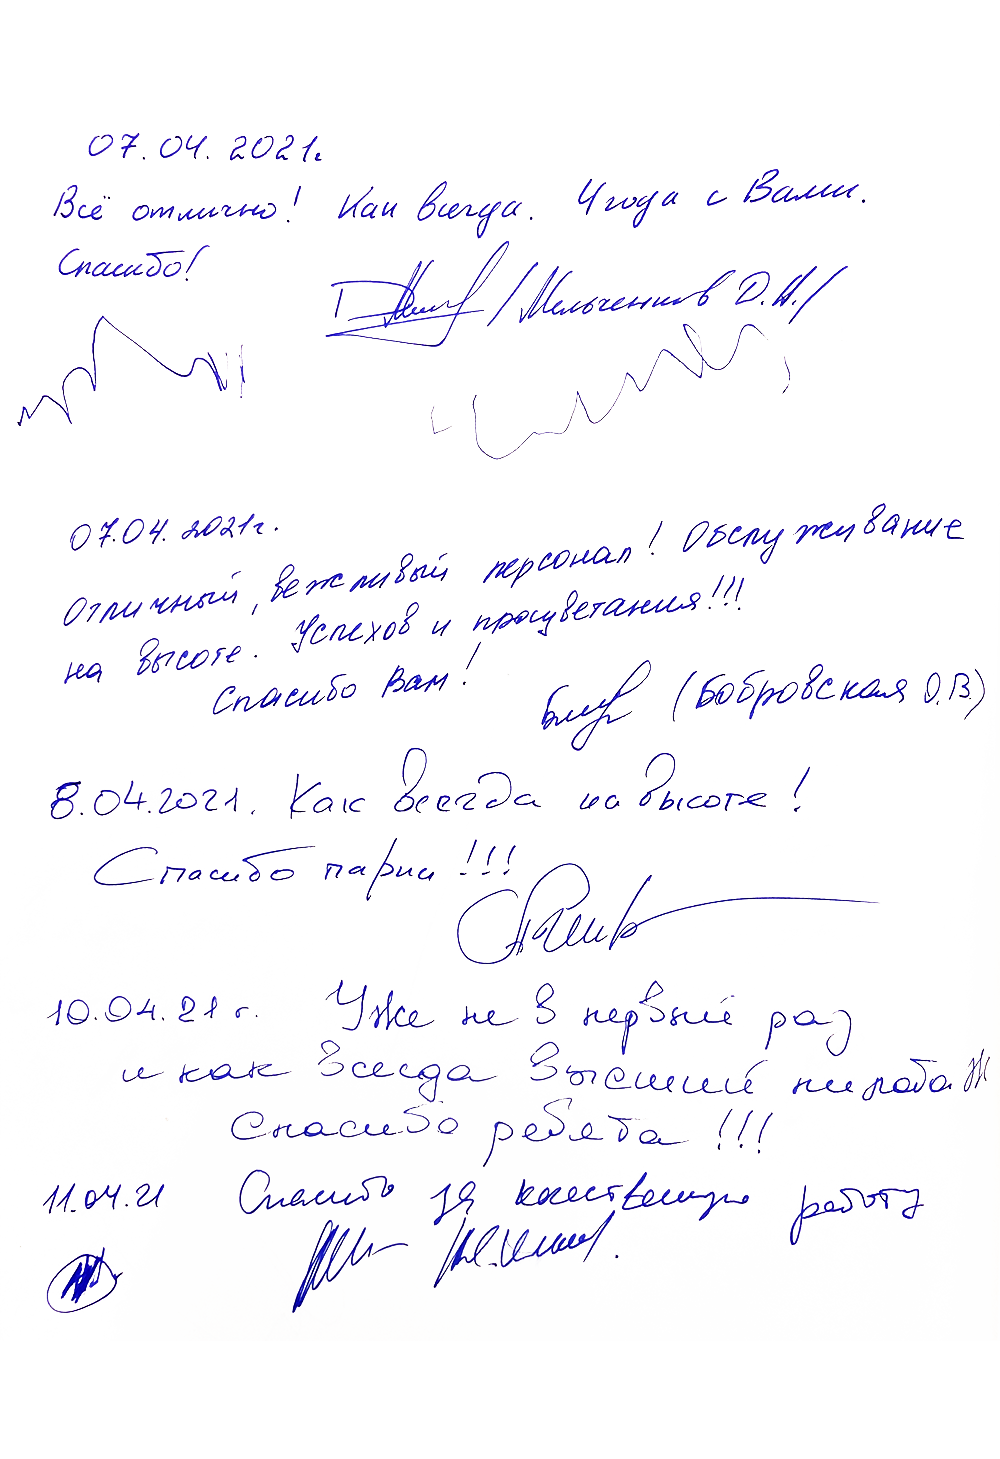 07.04.2021г.
Всё отлично! Как всегда. 4 года с Вами.
Спасибо!
/Мельченков Д.А./
07.04.2021г.
Отличный, вежливый персонал! Обслуживание
на высоте. Успехов и процветания!!!
Спасибо Вам!
(Бобровская О.В.)
8.04.2021. Как всегда на высоте!
Спасибо парни!!!
10.04.21 г. Уже не в первый раз
и как всегда высший
Спасибо ребята!!!
11.04.21 Спасибо за качественную работу